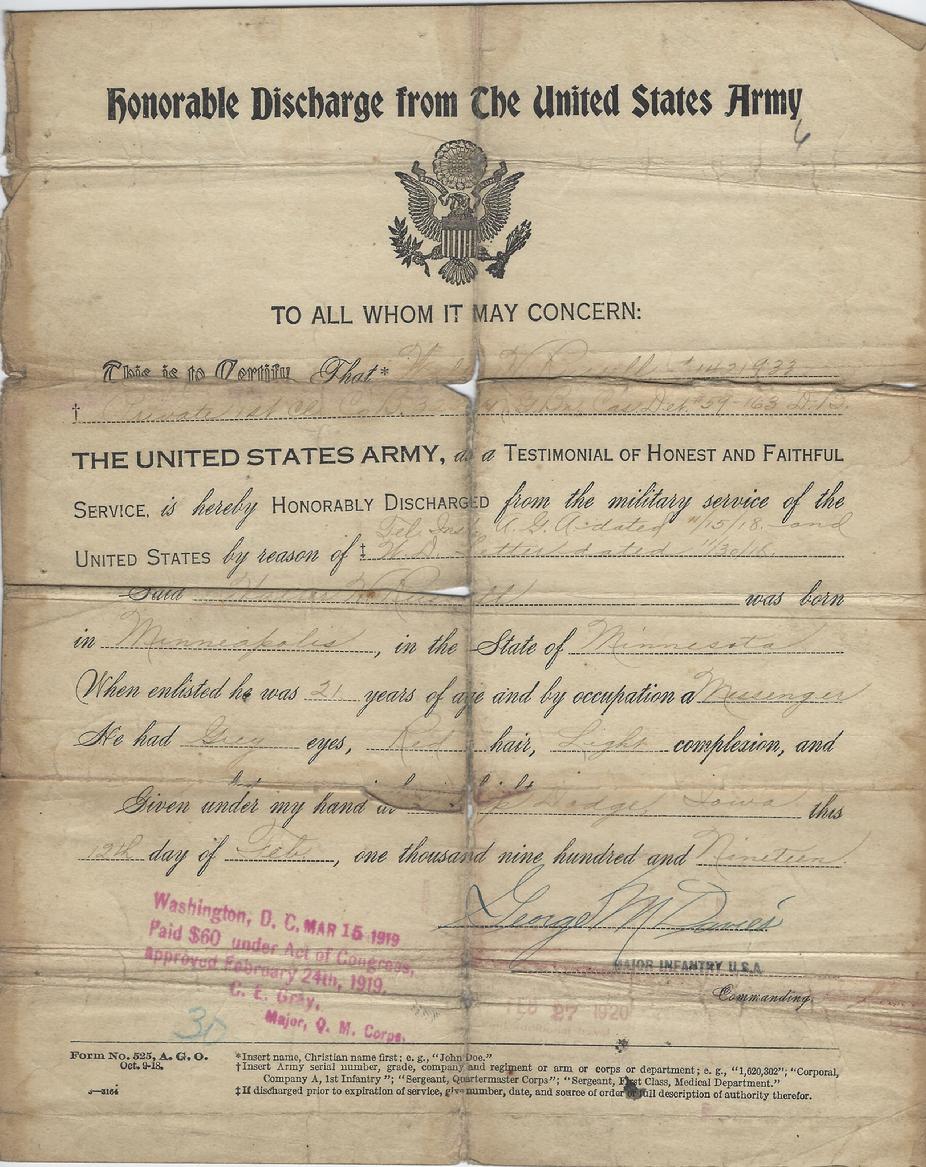 Honorable Discharge from The United States Army
6
TO ALL WHOM IT MAY CONCERN:
This is to Certify That*
† Private 1st Cl
THE UNITED STATES ARMY, as a TESTIMONIAL OF HONEST AND FAITHFUL
SERVICE, is hereby HONORABLY DISCHARGED from the military service of the
Tel. A. G. O. dated 11/15/18 and
UNITED STATES by reason of ‡ W.D. Letter dated
Said was born
in Minneapolis, in the State of Minnesota
When enlisted he was 21 years of age and by occupation a Messenger
He had Grey eyes, Red hair, Light complexion, and
Given under my hand at Dodge, Iowa this
12th day of Feb, one thousand nine hundred and Nineteen.
George M Davies
Washington, D. C. MAR 15 1919
Paid $60 under Act of Congress,
approved February 24th, 1919.
C. E. Gray,
Major, Q. M. Corps.
MAJOR INFANTRY U.S.A.
Commanding.
FEB 27 1920
30
Form No. 525, A. G. O.
Oct. 9-18.
3—3164
*Insert name, Christian name first; e. g., "John Doe."
†Insert Army serial number, grade, company and regiment or arm or corps or department; e. g., "1,620,302"; "Corporal,
Company A, 1st Infantry"; "Sergeant, Quartermaster Corps"; "Sergeant, First Class, Medical Department."
‡If discharged prior to expiration of service, give number, date, and source of order or full description of authority therefor.